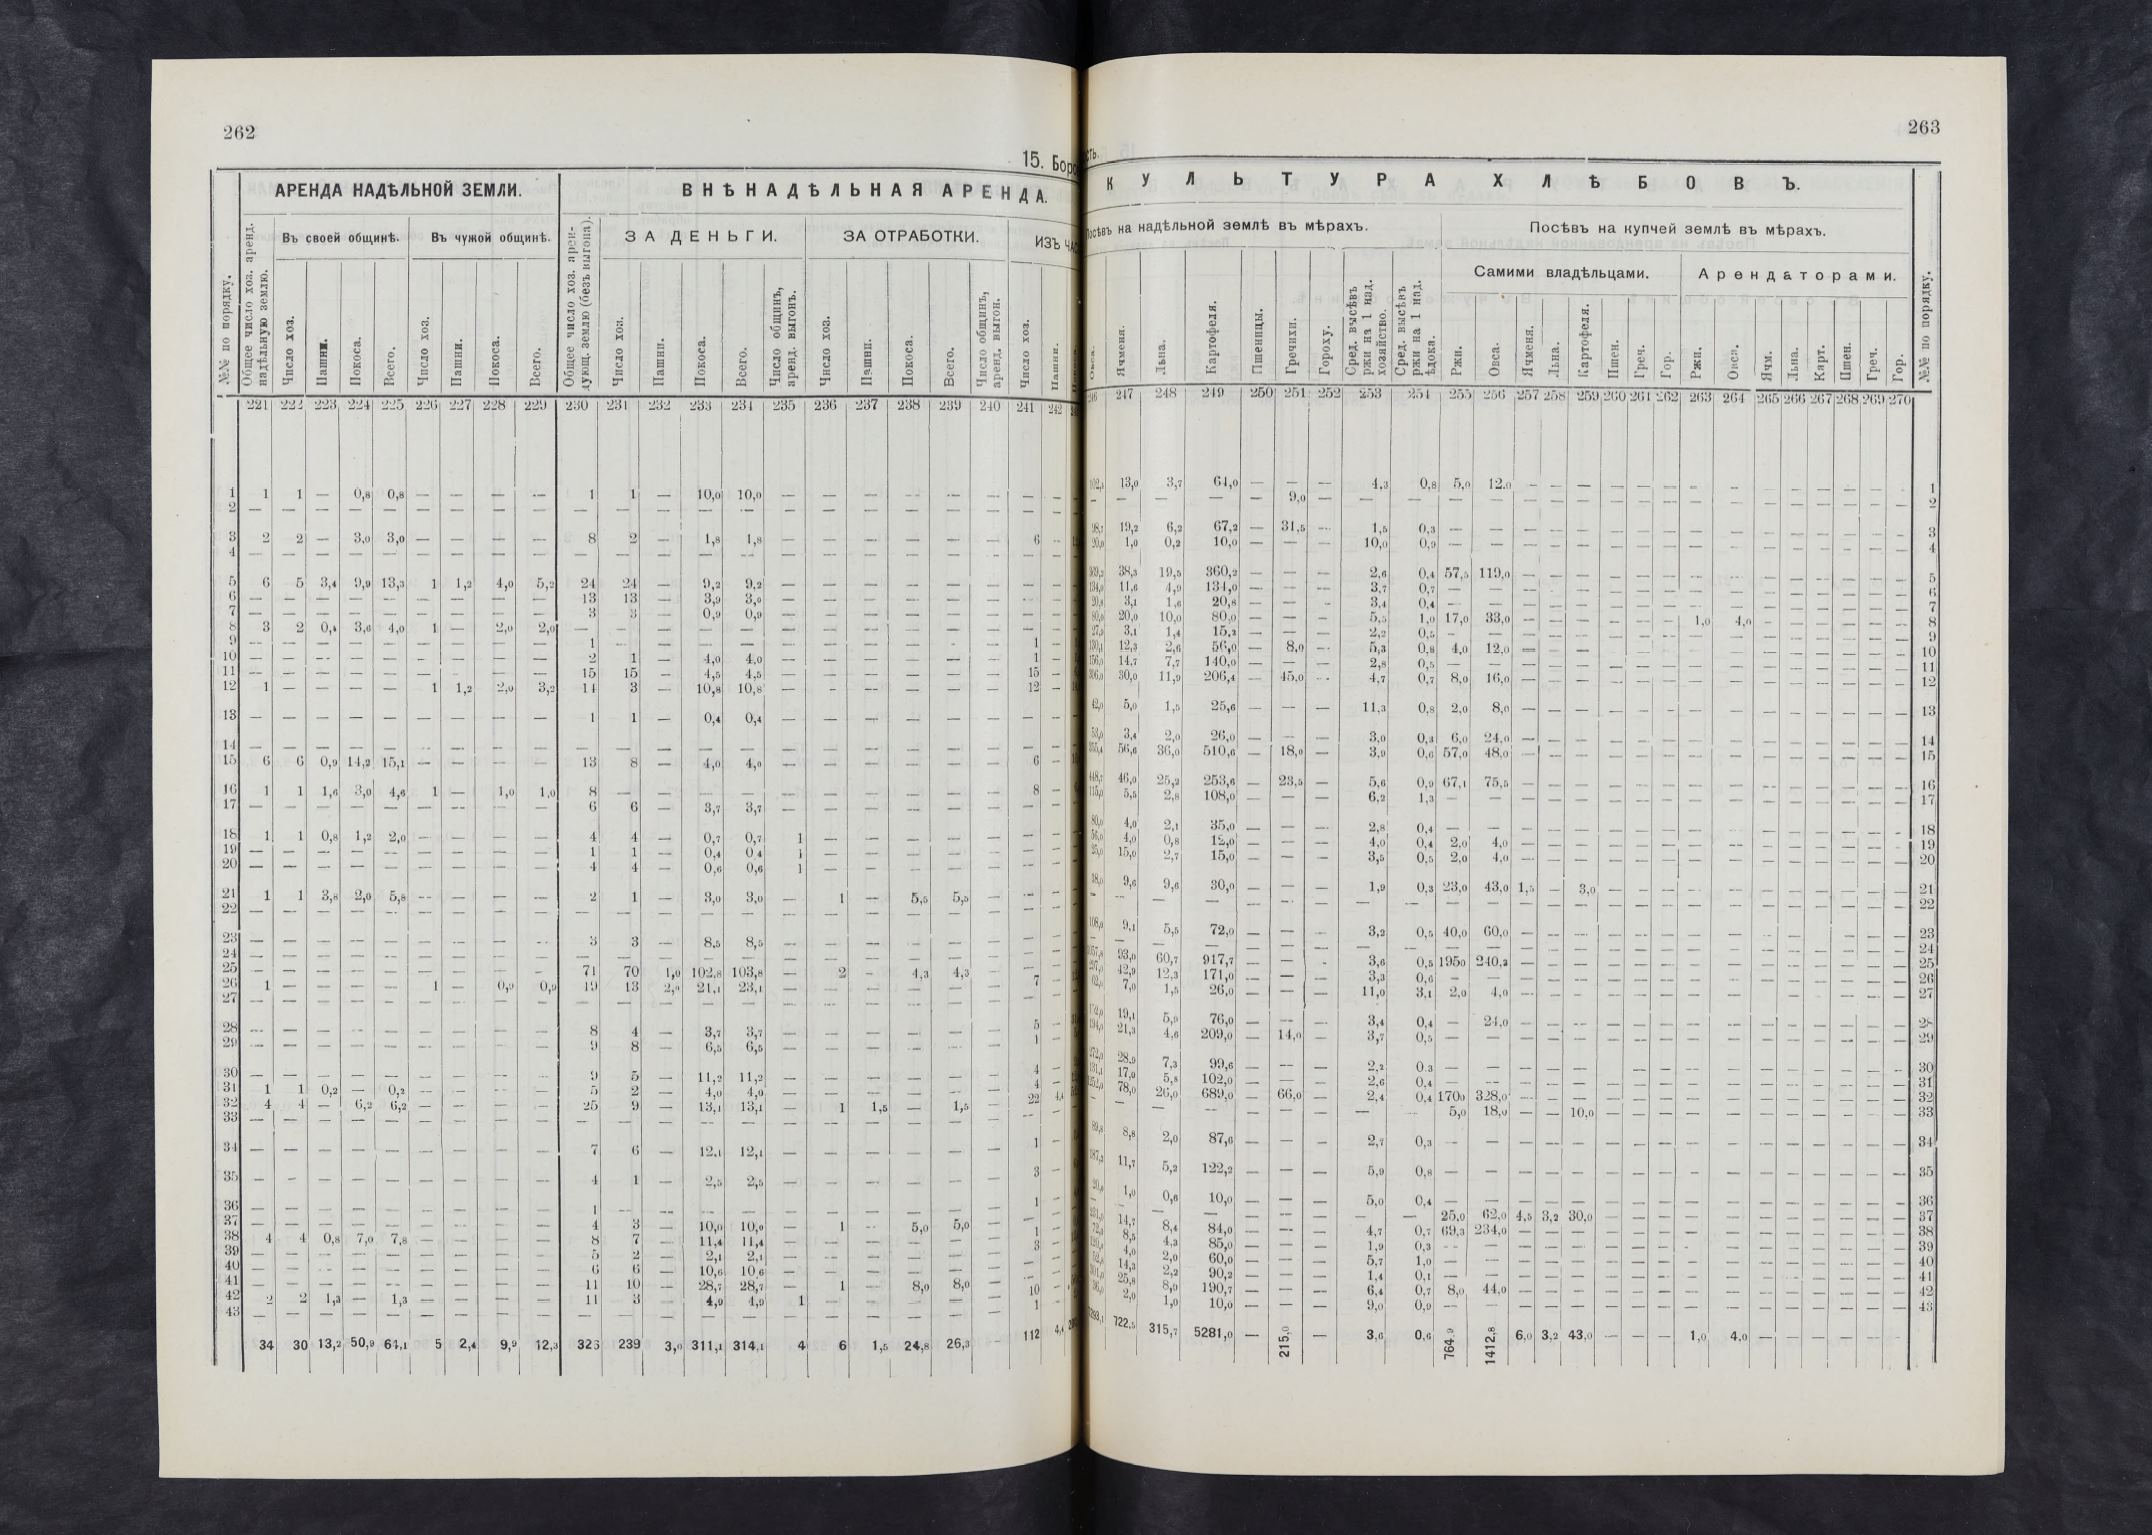 262
15. Боро
АРЕНДА НАДѢЛЬНОЙ ЗЕМЛИ.
ВНѢНАДѢЛЬНАЯ АРЕНДА.
Въ своей общинѣ. Въ чужой общинѣ. ЗА ДЕНЬГИ. ЗА ОТРАБОТКИ. ИЗЪ ЧАС
№№ по порядку. Общее число хоз. аренд. надѣльную землю. Число хоз. Пашни. Покоса. Всего. Число хоз. Пашни. Покоса. Всего. Общее число хоз. арендующ. землю (безъ выгона). Число хоз. Пашни. Покоса. Всего. Число общинъ, аренд. выгонъ. Число хоз. Пашни. Покоса. Всего. Число общинъ, аренд. выгон. Число хоз. Пашни.
221 222 223 224 225 226 227 228 229 230 231 232 233 234 235 236 237 238 239 240 241 242
1 1 1 — 0,8 0,8 — — — — 1 1 — 10,0 10,0 — — — — — — — —
2 — — — — — — — — — — — — — — — — — — — — — —
3 2 2 — 3,0 3,0 — — — — 8 2 — 1,8 1,8 — — — — — — 6 —
4 — — — — — — — — — — — — — — — — — — — — — —
5 6 5 3,4 9,9 13,3 1 1,2 4,0 5,2 24 24 — 9,2 9,2 — — — — — — — —
6 — — — — — — — — — 13 13 — 3,9 3,9 — — — — — — — —
7 — — — — — — — — — 3 3 — 0,9 0,9 — — — — — — — —
8 3 2 0,4 3,6 4,0 1 — 2,0 2,0 — — — — — — — — — — — — —
9 — — — — — — — — — 1 — — — — — — — — — — 1 —
10 — — — — — — — — — 2 1 — 4,0 4,0 — — — — — — 1 —
11 — — — — — — — — — 15 15 — 4,5 4,5 — — — — — — 15 —
12 1 — — — — 1 1,2 2,0 3,2 14 3 — 10,8 10,8 — — — — — — 12 —
13 — — — — — — — — — 1 1 — 0,4 0,4 — — — — — — — —
14 — — — — — — — — — — — — — — — — — — — — — —
15 6 6 0,9 14,2 15,1 — — — — 13 8 — 4,0 4,0 — — — — — — 6 —
16 1 1 1,6 3,0 4,6 1 — 1,0 1,0 8 — — — — — — — — — — 8 —
17 — — — — — — — — — 6 6 — 3,7 3,7 — — — — — — — —
18 1 1 0,8 1,2 2,0 — — — — 4 4 — 0,7 0,7 1 — — — — — — —
19 — — — — — — — — — 1 1 — 0,4 0,4 1 — — — — — — —
20 — — — — — — — — — 4 4 — 0,6 0,6 1 — — — — — — —
21 1 1 3,8 2,0 5,8 — — — — 2 1 — 3,0 3,0 — 1 — 5,5 5,5 — — —
22 — — — — — — — — — — — — — — — — — — — — — —
23 — — — — — — — — — 3 3 — 8,5 8,5 — — — — — — — —
24 — — — — — — — — — — — — — — — — — — — — — —
25 — — — — — — — — — 71 70 1,0 102,8 103,8 — 2 — 4,3 4,3 — — —
26 1 — — — — 1 — 0,9 0,9 19 13 2,0 21,1 23,1 — — — — — — 7 —
27 — — — — — — — — — — — — — — — — — — — — — —
28 — — — — — — — — — 8 4 — 3,7 3,7 — — — — — — 5 —
29 — — — — — — — — — 9 8 — 6,5 6,5 — — — — — — 1 —
30 — — — — — — — — — 9 5 — 11,2 11,2 — — — — — — 4 —
31 1 1 0,2 — 0,2 — — — — 5 2 — 4,0 4,0 — — — — — — 4 —
32 4 4 — 6,2 6,2 — — — — 25 9 — 13,1 13,1 — 1 1,5 — 1,5 — 22 4,4
33 — — — — — — — — — — — — — — — — — — — — — —
34 — — — — — — — — — 7 6 — 12,1 12,1 — — — — — — 1 —
35 — — — — — — — — — 4 1 — 2,5 2,5 — — — — — — 3 —
36 — — — — — — — — — 1 — — — — — — — — — — 1 —
37 — — — — — — — — — 4 3 — 10,0 10,0 — 1 — 5,0 5,0 — — —
38 4 4 0,8 7,0 7,8 — — — — 8 7 — 11,4 11,4 — — — — — — 1 —
39 — — — — — — — — — 5 2 — 2,1 2,1 — — — — — — 3 —
40 — — — — — — — — — 6 6 — 10,6 10,6 — — — — — — — —
41 — — — — — — — — — 11 10 — 28,7 28,7 — 1 — 8,0 8,0 — — —
42 2 2 1,3 — 1,3 — — — — 11 3 — 4,9 4,9 1 — — — — — 10 —
43 — — — — — — — — — — — — — — — — — — — — 1 —
34 30 13,2 50,9 64,1 5 2,4 9,9 12,3 326 239 3,0 311,1 314,1 4 6 1,5 24,8 26,3 — 112 4,4
263
сть.
КУЛЬТУРА ХЛѢБОВЪ.
Посѣвъ на надѣльной землѣ въ мѣрахъ. Посѣвъ на купчей землѣ въ мѣрахъ.
Самими владѣльцами. Арендаторами.
Овса. Ячменя. Льна. Картофеля. Пшеницы. Гречихи. Гороху. Сред. высѣвъ ржи на 1 над. хозяйство. Сред. высѣвъ ржи на 1 над. ѣдока. Ржи. Овса. Ячменя. Льна. Картофеля. Пшен. Греч. Гор. Ржи. Овса. Ячм. Льна. Карт. Пшен. Греч. Гор. №№ по порядку.
246 247 248 249 250 251 252 253 254 255 256 257 258 259 260 261 262 263 264 265 266 267 268 269 270
13,0 3,7 64,0 — — — 4,3 0,8 5,0 12,0 — — — — — — — — — — — — — — 1
— — — — — 9,0 — — — — — — — — — — — — — — — — — — — 2
19,2 6,2 67,2 — 31,5 — 1,5 0,3 — — — — — — — — — — — — — — — — 3
20,0 1,0 0,2 10,0 — — — 10,0 0,9 — — — — — — — — — — — — — — — — 4
38,3 19,5 360,2 — — — 2,6 0,4 57,5 119,0 — — — — — — — — — — — — — — 5
134,0 11,6 4,9 134,0 — — — 3,7 0,7 — — — — — — — — — — — — — — — — 6
20,8 3,1 1,6 20,8 — — — 3,4 0,4 — — — — — — — — — — — — — — — — 7
80,0 20,0 10,0 80,0 — — — 5,5 1,0 17,0 33,0 — — — — — — 1,0 4,0 — — — — — — 8
3,1 1,4 15,2 — — — 2,2 0,5 — — — — — — — — — — — — — — — — 9
12,3 2,6 56,0 — 8,0 — 5,3 0,8 4,0 12,0 — — — — — — — — — — — — — — 10
14,7 7,7 140,0 — — — 2,8 0,5 — — — — — — — — — — — — — — — — 11
30,0 11,9 206,4 — 45,0 — 4,7 0,7 8,0 16,0 — — — — — — — — — — — — — — 12
42,0 5,0 1,5 25,6 — — — 11,3 0,8 2,0 8,0 — — — — — — — — — — — — — — 13
3,4 2,0 26,0 — — — 3,0 0,3 6,0 24,0 — — — — — — — — — — — — — — 14
56,6 36,0 510,6 — 18,0 — 3,9 0,6 57,0 48,0 — — — — — — — — — — — — — — 15
46,0 25,2 253,6 — 23,5 — 5,6 0,9 67,1 75,5 — — — — — — — — — — — — — — 16
115,0 5,5 2,8 108,0 — — — 6,2 1,3 — — — — — — — — — — — — — — — — 17
80,0 4,0 2,1 35,0 — — — 2,8 0,4 — — — — — — — — — — — — — — — — 18
56,0 4,0 0,8 12,0 — — — 4,0 0,4 2,0 4,0 — — — — — — — — — — — — — — 19
15,0 2,7 15,0 — — — 3,5 0,5 2,0 4,0 — — — — — — — — — — — — — — 20
9,6 9,6 30,0 — — — 1,9 0,3 23,0 43,0 1,5 — 3,0 — — — — — — — — — — — 21
— — — — — — — — — — — — — — — — — — — — — — — — — 22
108,0 9,1 5,5 72,0 — — — 3,2 0,5 40,0 60,0 — — — — — — — — — — — — — — 23
— — — — — — — — — — — — — — — — — — — — — — — — — 24
93,0 60,7 917,7 — — — 3,6 0,5 1950 240,2 — — — — — — — — — — — — — — 25
42,9 12,3 171,0 — — — 3,3 0,6 — — — — — — — — — — — — — — — — 26
7,0 1,5 26,0 — — — 11,0 3,1 2,0 4,0 — — — — — — — — — — — — — — 27
19,1 5,9 76,0 — — — 3,4 0,4 — 24,0 — — — — — — — — — — — — — — 28
21,3 4,6 209,0 — 14,0 — 3,7 0,5 — — — — — — — — — — — — — — — — 29
28,9 7,3 99,6 — — — 2,2 0,3 — — — — — — — — — — — — — — — — 30
17,0 5,8 102,0 — — — 2,6 0,4 — — — — — — — — — — — — — — — — 31
78,0 26,0 689,0 — 66,0 — 2,4 0,4 1700 328,0 — — — — — — — — — — — — — — 32
— — — — — — — — — 5,0 18,0 — — 10,0 — — — — — — — — — — — 33
8,8 2,0 87,6 — — — 2,7 0,3 — — — — — — — — — — — — — — — — 34
11,7 5,2 122,2 — — — 5,9 0,8 — — — — — — — — — — — — — — — — 35
20,0 1,0 0,6 10,0 — — — 5,0 0,4 — — — — — — — — — — — — — — — — 36
— — — — — — — — — 25,0 62,0 4,5 3,2 30,0 — — — — — — — — — — — 37
14,7 8,4 84,0 — — — 4,7 0,7 69,3 234,0 — — — — — — — — — — — — — — 38
8,5 4,3 85,0 — — — 1,9 0,3 — — — — — — — — — — — — — — — — 39
4,0 2,0 60,0 — — — 5,7 1,0 — — — — — — — — — — — — — — — — 40
14,3 2,2 90,2 — — — 1,4 0,1 — — — — — — — — — — — — — — — — 41
25,8 8,0 190,7 — — — 6,4 0,7 8,0 44,0 — — — — — — — — — — — — — — 42
2,0 1,0 10,0 — — — 9,0 0,9 — — — — — — — — — — — — — — — — 43
722,5 315,7 5281,0 — 215,0 — 3,6 0,6 764,9 1412,8 6,0 3,2 43,0 — — — 1,0 4,0 — — — — — —